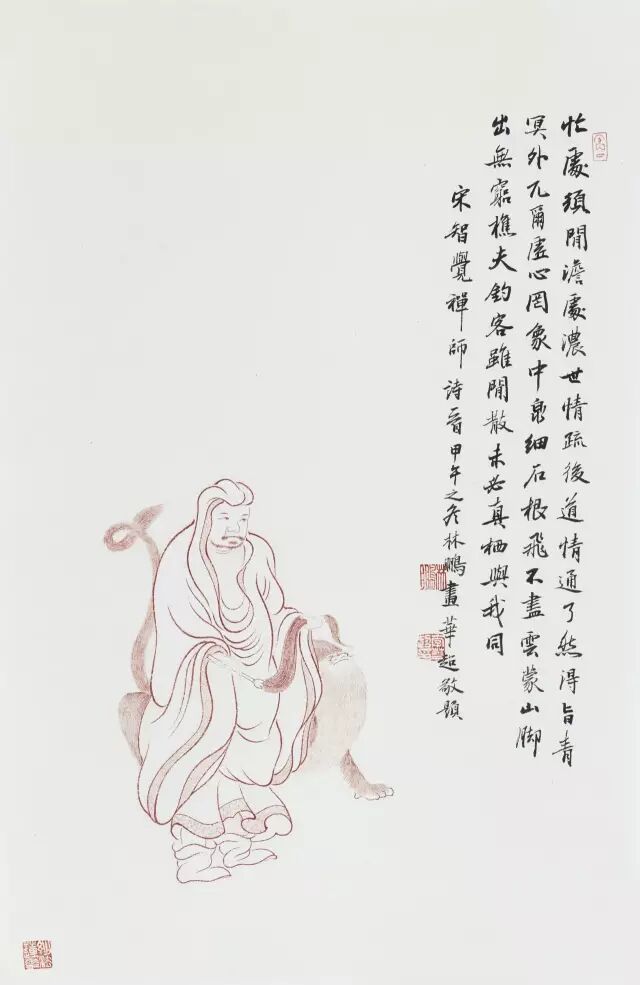 忙處須閒澹處濃世情疏後道情通了然得旨青
冥外兀爾虛心罔象中泉細石根飛不盡雲蒙山腳
出無窮樵夫釣客雖閒散未必真栖與我同
宋智覺禪師詩首甲午之冬林鵬畫華超敬題